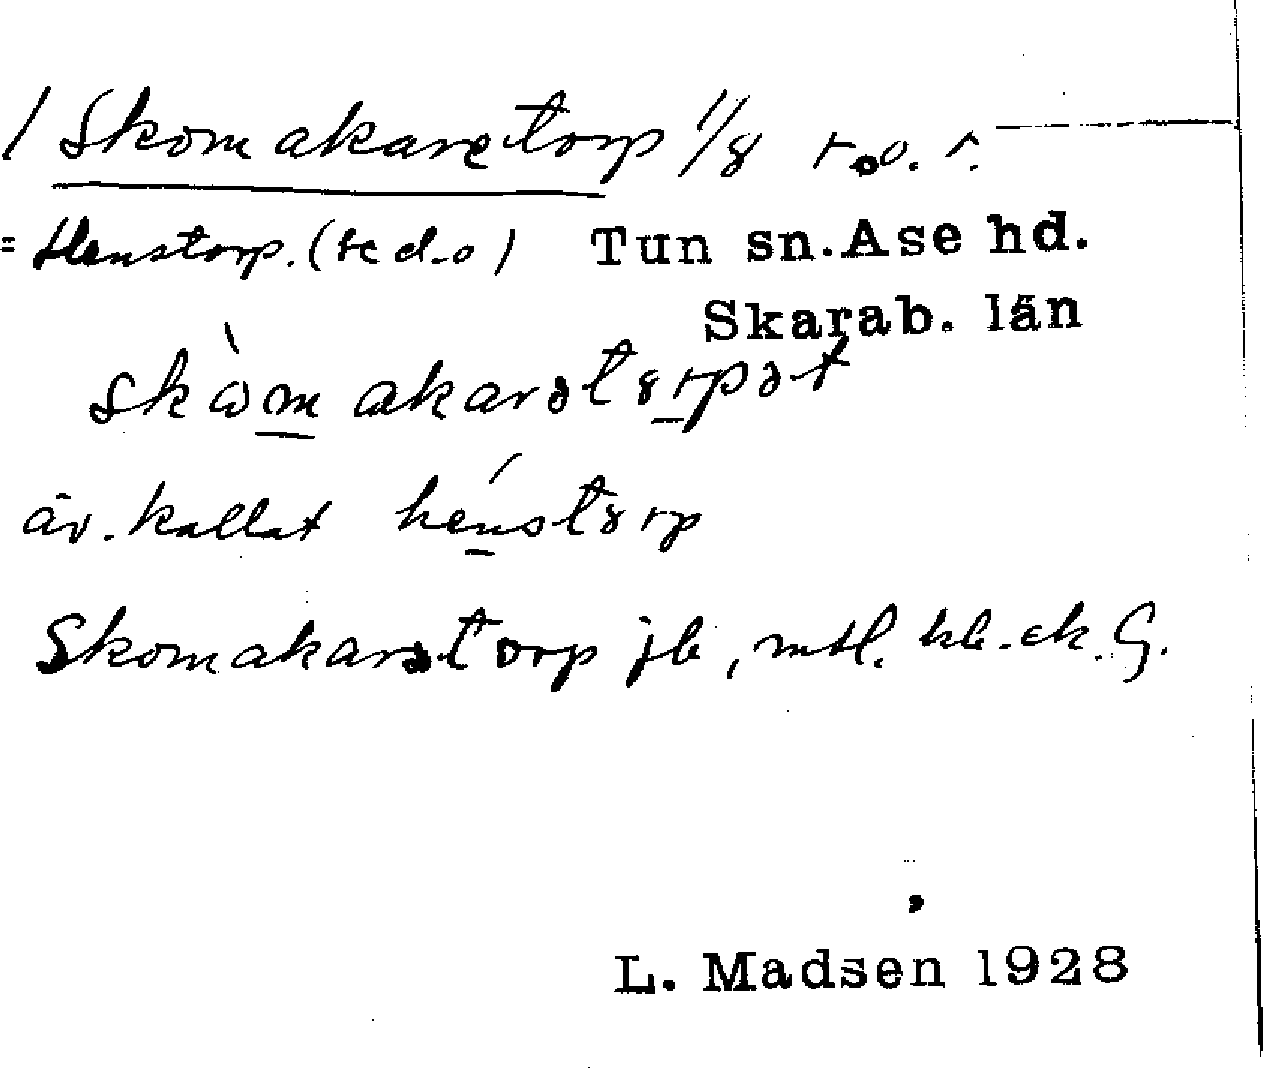 / Skomakaretorp 1/8 r.o. r.
= Henstorp. (se d.o) Tun sn. Ase hd.
Skarab. län
skòmakarətɜrpət
äv. kallat hénstɜrp
Skomakaretorp jb, mtl. hb. ek. G.
L. Madsen 1928